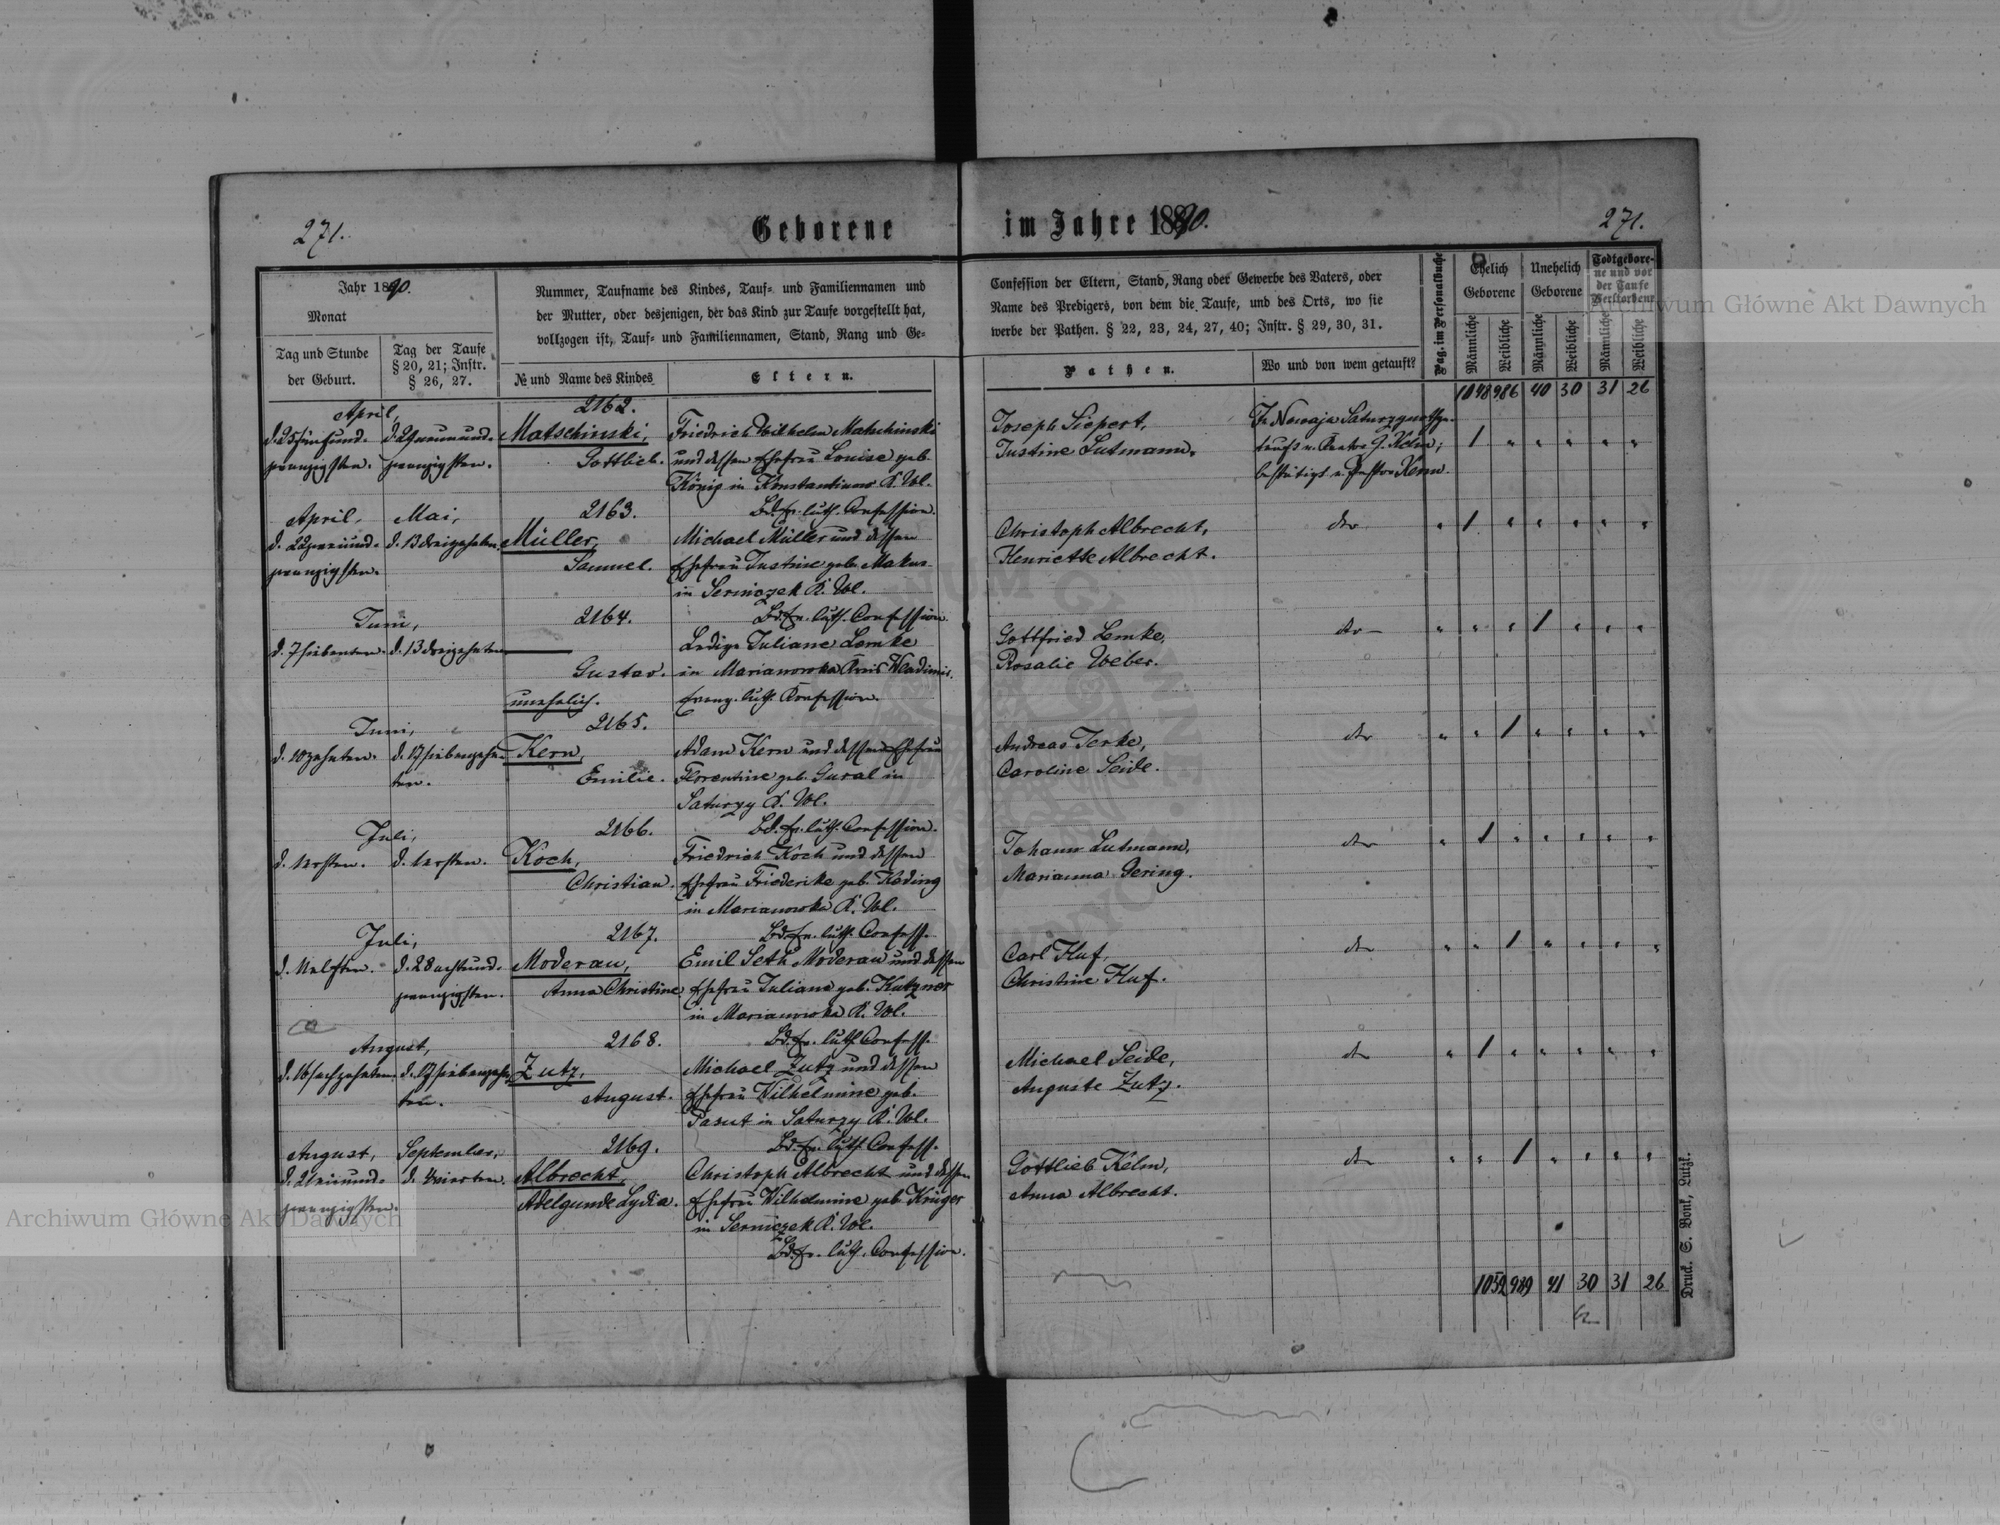 271.
Geborene
im Jahre 1890.
271.
Jahr 1890.
Monat
Tag und Stunde
der Geburt.
Tag der Taufe
§ 20, 21; Instr.
§ 26, 27.
Nummer, Taufname des Kindes, Tauf- und Familiennamen und
der Mutter, oder desjenigen, der das Kind zur Taufe vorgestellt hat,
vollzogen ist, Tauf- und Familiennamen, Stand, Rang und Ge-
№ und Name des Kindes
Eltern.
Confession der Eltern, Stand, Rang oder Gewerbe des Vaters, oder
Name des Predigers, von dem die Taufe, und des Orts, wo sie
werbe der Pathen. § 22, 23, 24, 27, 40; Instr. § 29, 30, 31.
Pathen.
Wo und von wem getauft?
Pag. im Personalbuche
Ehelich
Geborene
Unehelich
Geborene
Todtgebore-
ne und vor
der Taufe
Verstorbene
Männliche
Weibliche
Männliche
Weibliche
Männliche
Weibliche
1048 986 40 30 31 26
April,
d. 25 fünfund-
zwanzigsten.
d. 29 neunund-
zwanzigsten.
2162.
Matschinski,
Gottlieb.
Friedrich Wilhelm Matschinski
und dessen Ehefrau Louise geb.
König in Konstantinow K. Wl.
Bd. Ev. luth. Confession.
Joseph Siepert,
Justine Lutmann.
In Nowaja Saturzy
tauft v. Kantor G. Kelm;
bestätigt v. Pastor Kern.
1 " " " " "
April,
d. 22 zweiund-
zwanzigsten.
Mai,
d. 13 dreizehnten.
2163.
Müller,
Samuel.
Michael Müller und dessen
Ehefrau Justine geb. Makus
in Serniczek K. Wl.
Bd. Ev. luth. Confession.
Christoph Albrecht,
Henriette Albrecht.
dto
" 1 " " " " "
Juni,
d. 7 siebenten.
d. 13 dreizehnten
2164.
Gustav.
unehelich.
Ledige Juliane Lemke
in Marianowka Kreis Wladimir.
Evang. luth. Konfession.
Gottfried Lemke,
Rosalie Weber.
dto
" " " 1 " " "
Juni,
d. 10 zehnten.
d. 17 siebenzehn-
ten.
2165.
Kern,
Emilie.
Adam Kern und dessen Ehefrau
Florentine geb. Gural in
Saturzy K. Wl.
Bd. Ev. luth. Confession.
Andreas Jerke,
Caroline Seide.
dto
" " 1 " " " "
Juli,
d. 1 ersten.
d. 1 ersten.
2166.
Koch,
Christian.
Friedrich Koch und dessen
Ehefrau Friederike geb. Kading
in Marianowka K. Wl.
Bd. Ev. luth. Confess.
Johann Lutmann,
Marianna Gering.
dto
" 1 " " " " "
Juli,
d. 11 elften.
d. 28 achtund-
zwanzigsten.
2167.
Moderau,
Anna Christine.
Emil Seth Moderau und dessen
Ehefrau Juliane geb. Kutzner
in Marianowka K. Wl.
Bd. Ev. luth. Confess.
Carl Huf,
Christine Huf.
dto
" " 1 " " " "
August,
d. 16 sechzehnten.
d. 17 siebenzehn-
ten.
2168.
Zutz,
August.
Michael Zutz und dessen
Ehefrau Wilhelmine geb.
Parut in Saturzy K. Wl.
Bd. Ev. luth. Confess.
Michael Seide,
Auguste Zutz.
dto
" 1 " " " " "
August,
d. 21 einund-
zwanzigsten.
September,
d. 4 vierten.
2169.
Albrecht,
Adelgunde Lydia.
Christoph Albrecht und dessen
Ehefrau Wilhelmine geb. Krüger
in Serniczek K. Wl.
Bd. Ev. luth. Confession.
Gottlieb Kelm,
Anna Albrecht.
dto
" " 1 " " " "
1052 989 41 30 31 26
Druck. S. Bonk, Lutzk.
Archiwum Główne Akt Dawnych
Archiwum Główne Akt Dawnych